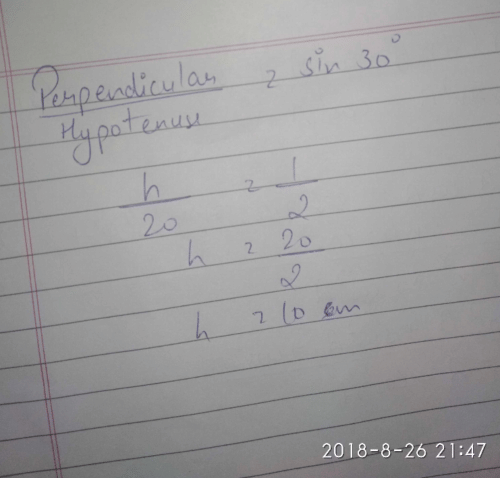 Perpendicular / Hypotenuse = sin 30°
h / 20 = 1 / 2
h = 20 / 2
h = 10 cm
2018-8-26 21:47